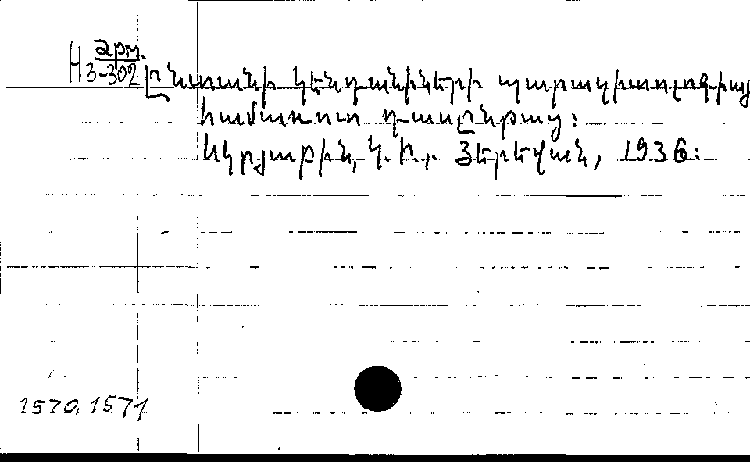 Арм.
Н3-302
Ընտանի կենդանիների պարազիտոլոգիայի
համառոտ դասընթաց:
Սկրյաբին, Կ. Ի., Յերեվան, 1936:
1570, 1571